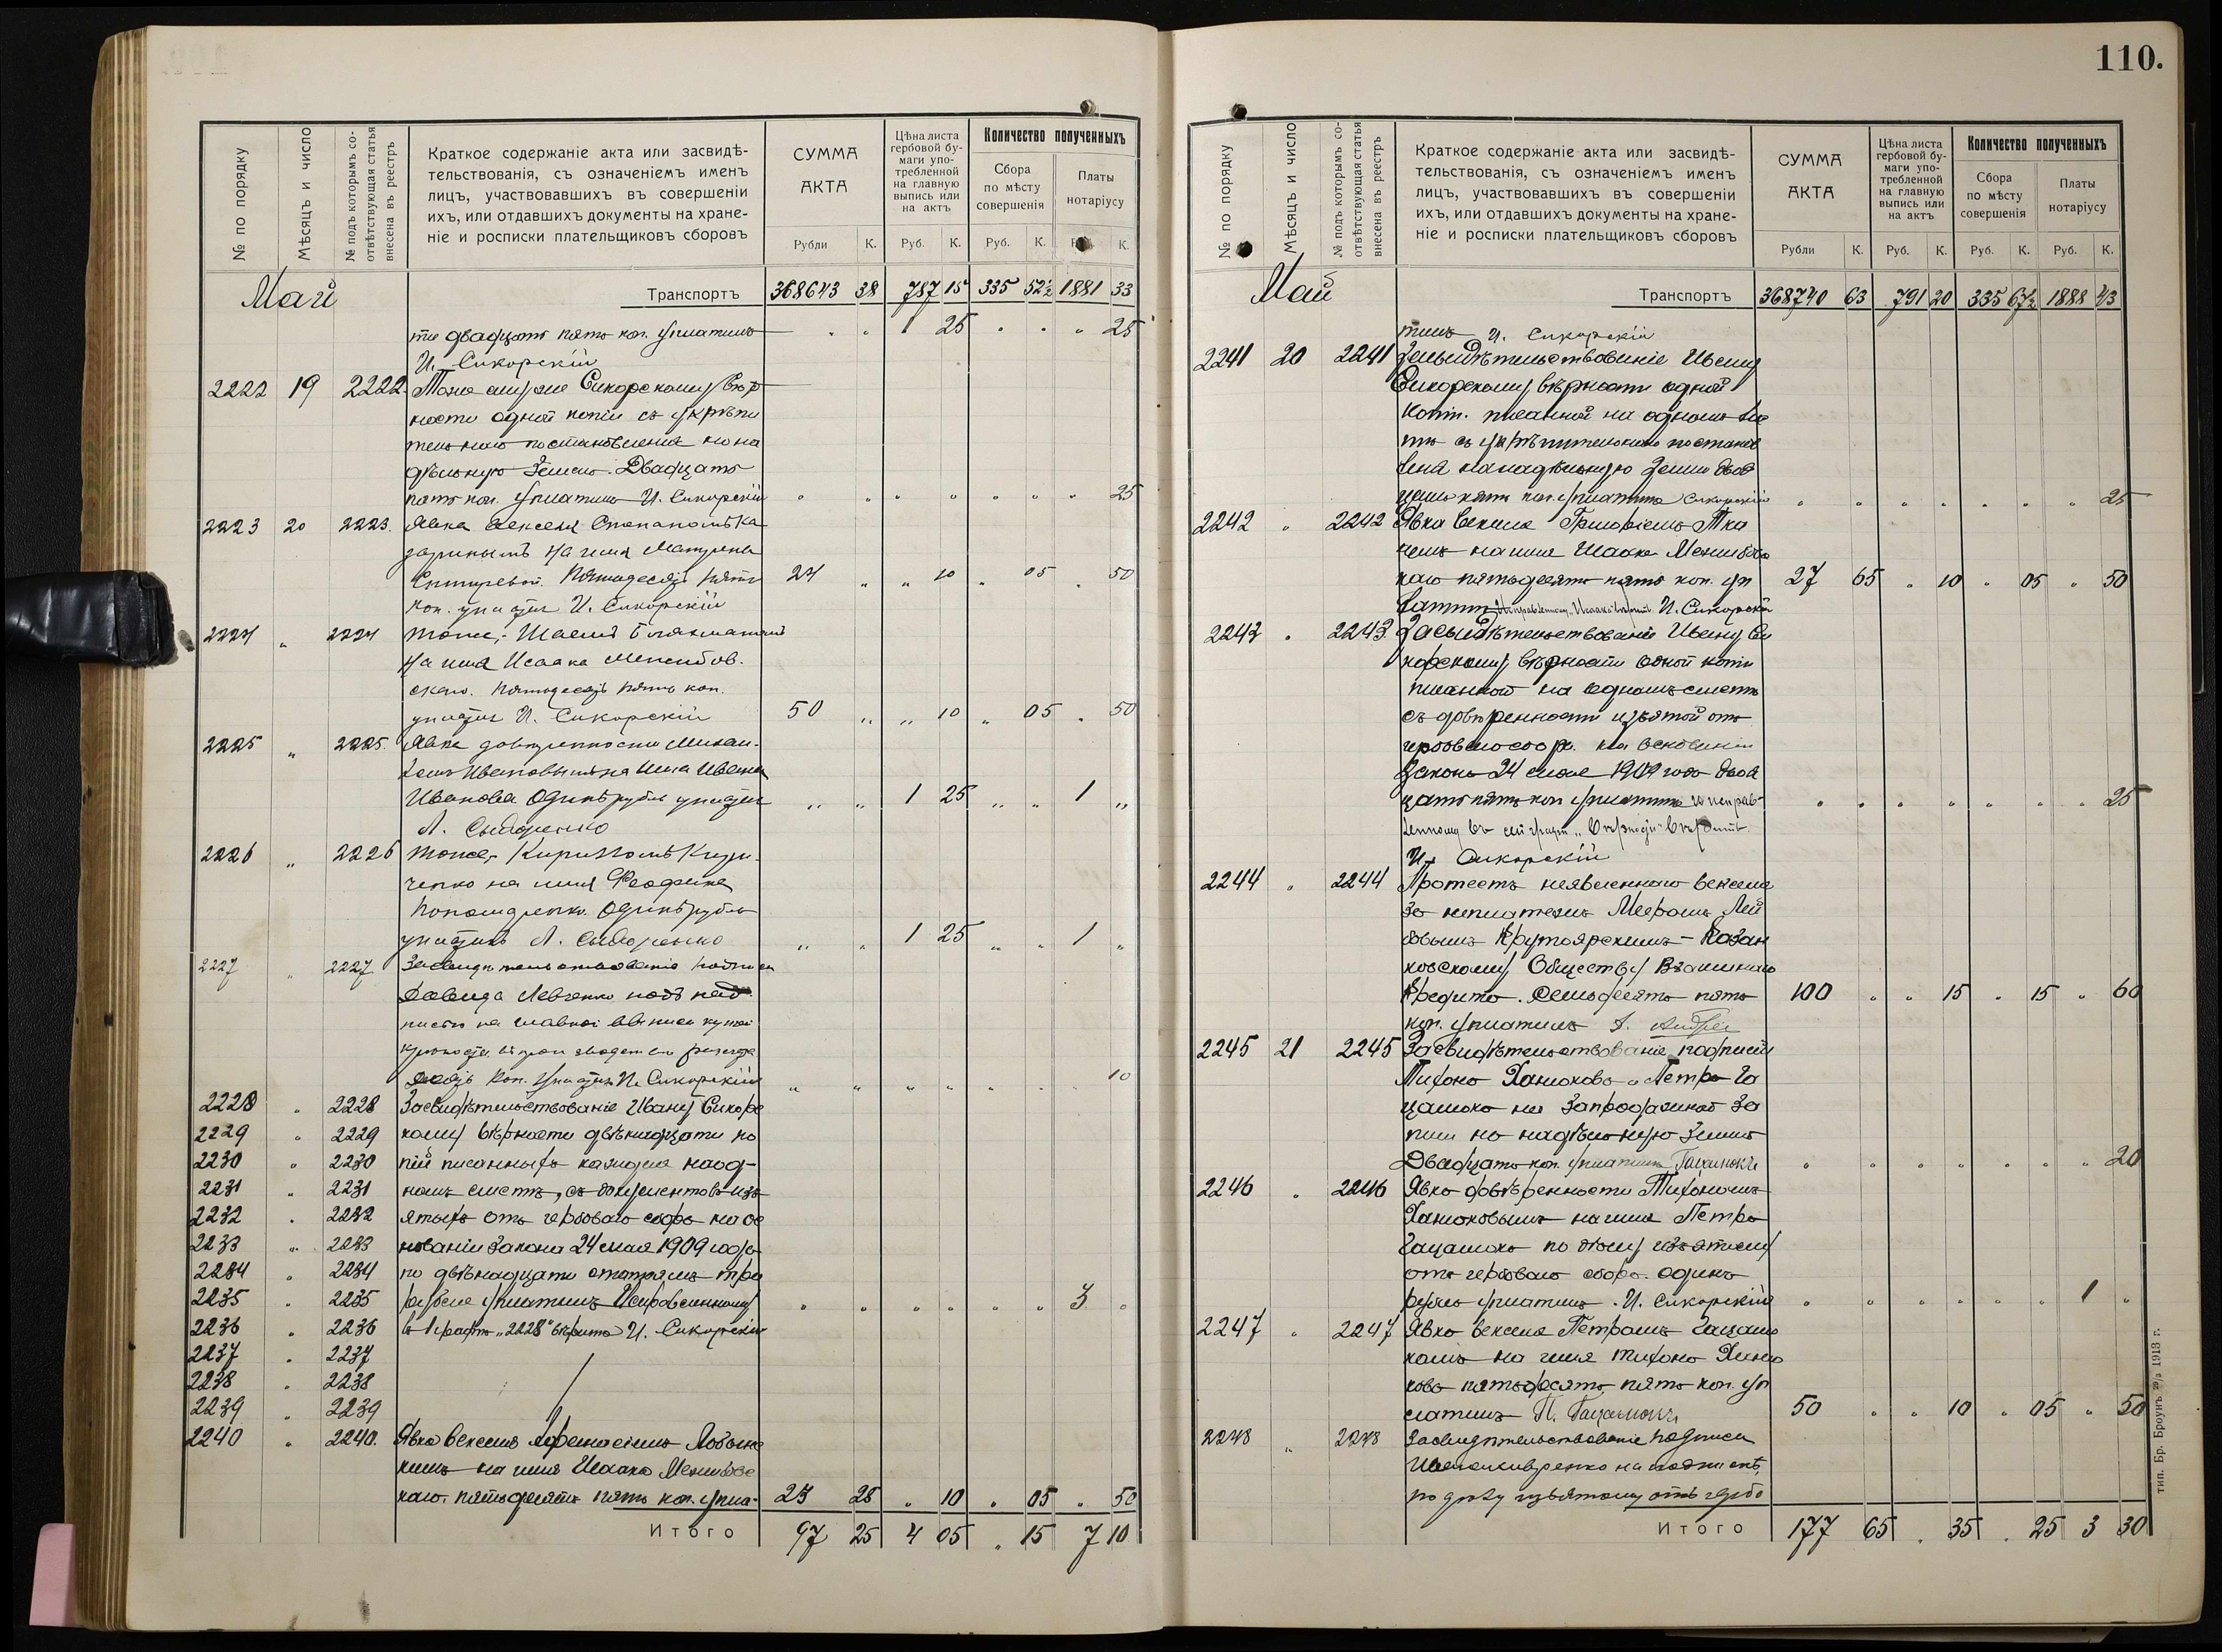 № по порядку
Мѣсяцъ и число
№ подъ которымъ со-
отвѣтствующая статья
внесена въ реестръ
Краткое содержаніе акта или засвидѣ-
тельствованія, съ означеніемъ именъ
лицъ, участвовавшихъ въ совершеніи
ихъ, или отдавшихъ документы на хране-
ніе и росписки плательщиковъ сборовъ
СУММА
АКТА
Рубли К.
Цѣна листа
гербовой бу-
маги упо-
требленной
на главную
выпись или
на актъ
Руб. К.
Количество полученныхъ
Сбора
по мѣсту
совершенія
Руб. К.
Платы
нотаріусу
К.
Май Транспортъ 368643 38 787 15 335 52½ 1881 33
ти двадцать пять коп. уплатилъ 1 25 25
И. Сикорскій
2222 19 2222 Тоже ему же Сикорскому вѣр
ности одной копіи съ укрѣпи
тельнаго постановленія на на
дѣльную Землю. Двадцать
пять коп. уплатилъ И. Сикорскій 25
2223 20 2223. Явка векселя Степаномъ Ка
на имя Матрены
Пятьдесятъ пять 24 10 05 50
коп. уплатилъ И. Сикорскій
2224 " 2224 тоже,
на имя Исаака Менжибов.
скаго. Пятьдесятъ пять коп.
уплатилъ И. Сикорскій 50 10 05 50
2225 " 2225. Явка довѣренности Михаи-
ломъ Ивановымъ на имя Ивана
Иванова Одинъ рубль уплатилъ 1 25 1
Л. Сидоренко
2226 " 2226 тоже, Кирилломъ
ченко на имя Феофана
Пономаренко. Одинъ рубль
уплатилъ Л. Сидоренко 1 25 1
2227 " 2227 Засвидѣтельствованіе подписи
Давида Левченко подъ над
писью на главной выписи купчей
десять Коп. Уплатилъ И. Сикорскій 10
2228 " 2228 Засвидѣтельствованіе Ивану Сикорс
2229 " 2229 кому вѣрности двѣнадцати ко
2230 " 2230 пій писанныхъ каждая на од-
2231 " 2231 номъ листѣ, съ документовъ изъ
2232 " 2232 ятыхъ отъ гербоваго сбора на ос
2233 " 2233 нованіи Закона 24 мая 1909 года
2234 " 2234 по двѣнадцати статьямъ три
2235 " 2235 рубля уплатилъ Исправленному 3
2236 " 2236 въ 1 графѣ „2228" вѣрить И. Сикорскій
2237 " 2237
2238 " 2238
2239 " 2239
2240 " 2240. Явка векселя Афанасіемъ
на имя Исаака Менжибовс
каго. пятьдесятъ пять коп. упла- 23 25 10 05 50
Итого 97 25 4 05 15 7 10
110.
№ по порядку
Мѣсяцъ и число
№ подъ которымъ со-
отвѣтствующая статья
внесена въ реестръ
Краткое содержаніе акта или засвидѣ-
тельствованія, съ означеніемъ именъ
лицъ, участвовавшихъ въ совершеніи
ихъ, или отдавшихъ документы на хране-
ніе и росписки плательщиковъ сборовъ
СУММА
АКТА
Рубли К.
Цѣна листа
гербовой бу-
маги упо-
требленной
на главную
выпись или
на актъ
Руб. К.
Количество полученныхъ
Сбора
по мѣсту
совершенія
Руб. К.
Платы
нотаріусу
Руб. К.
Май Транспортъ 368740 63 791 20 335 67½ 1888 43
тилъ И. Сикорскій
2241 20 2241 Засвидѣтельствованіе Ивану
Сикорскому вѣрности одной
копіи. писанной на одномъ лис
тѣ съ укрѣпительнаго постанов
ленія на надѣльную Землю двад
цать пять коп. уплатилъ Сикорскій 25
2242 " 2242 Явка векселя Григоріемъ Тка
чемъ на имя Исаака Менжибовс
каго пятьдесятъ пять коп. уп 27 65 10 05 50
латилъ Исправленному „Исаака" вѣрить И. Сикорскій
2243 " 2243 Засвидѣтельствованіе Ивану Си
корскому вѣрности одной копіи
писанной на одномъ листѣ
съ довѣренности изъятой отъ
гербоваго сбора. на основаніи
Закона 24 мая 1909 года двад
цать пять коп уплатилъ и исправ- 25
ленному въ сей графѣ „вѣрности" вѣрить.
И. Сикорскій
2244 " 2244 Протестъ неявленнаго векселя
за неплатежъ Мееромъ Лей
бовымъ Крутоярскимъ - Казан
ковскому Обществу Взаимнаго
Кредита. Семьдесятъ пять 100 15 15 60
коп. уплатилъ
2245 21 2245 Засвидѣтельствованіе подписи
Тихона Ханюкова и Петра Га
цанюка на Запродажной За
писи на надѣльную Землю
Двадцать коп. уплатилъ Гацанюкъ 20
2246 " 2246 Явка довѣренности Тихономъ
Ханюковымъ на имя Петра
Гацанюка по дѣлу изъятому
отъ гербоваго сбора. Одинъ
рубль уплатилъ. И. Сикорскій 1
2247 " 2247 Явка векселя Петромъ Гацаню
комъ на имя Тихона Ханю
кова пятьдесятъ пять коп. уп
латилъ П. Гацанюкъ 50 10 05 50
2248 " 2248 Засвидѣтельствованіе подписи
по дѣлу изъятому отъ гербо
Итого 177 65 35 25 3 30
тип. Бр. Броунъ 1913 г.